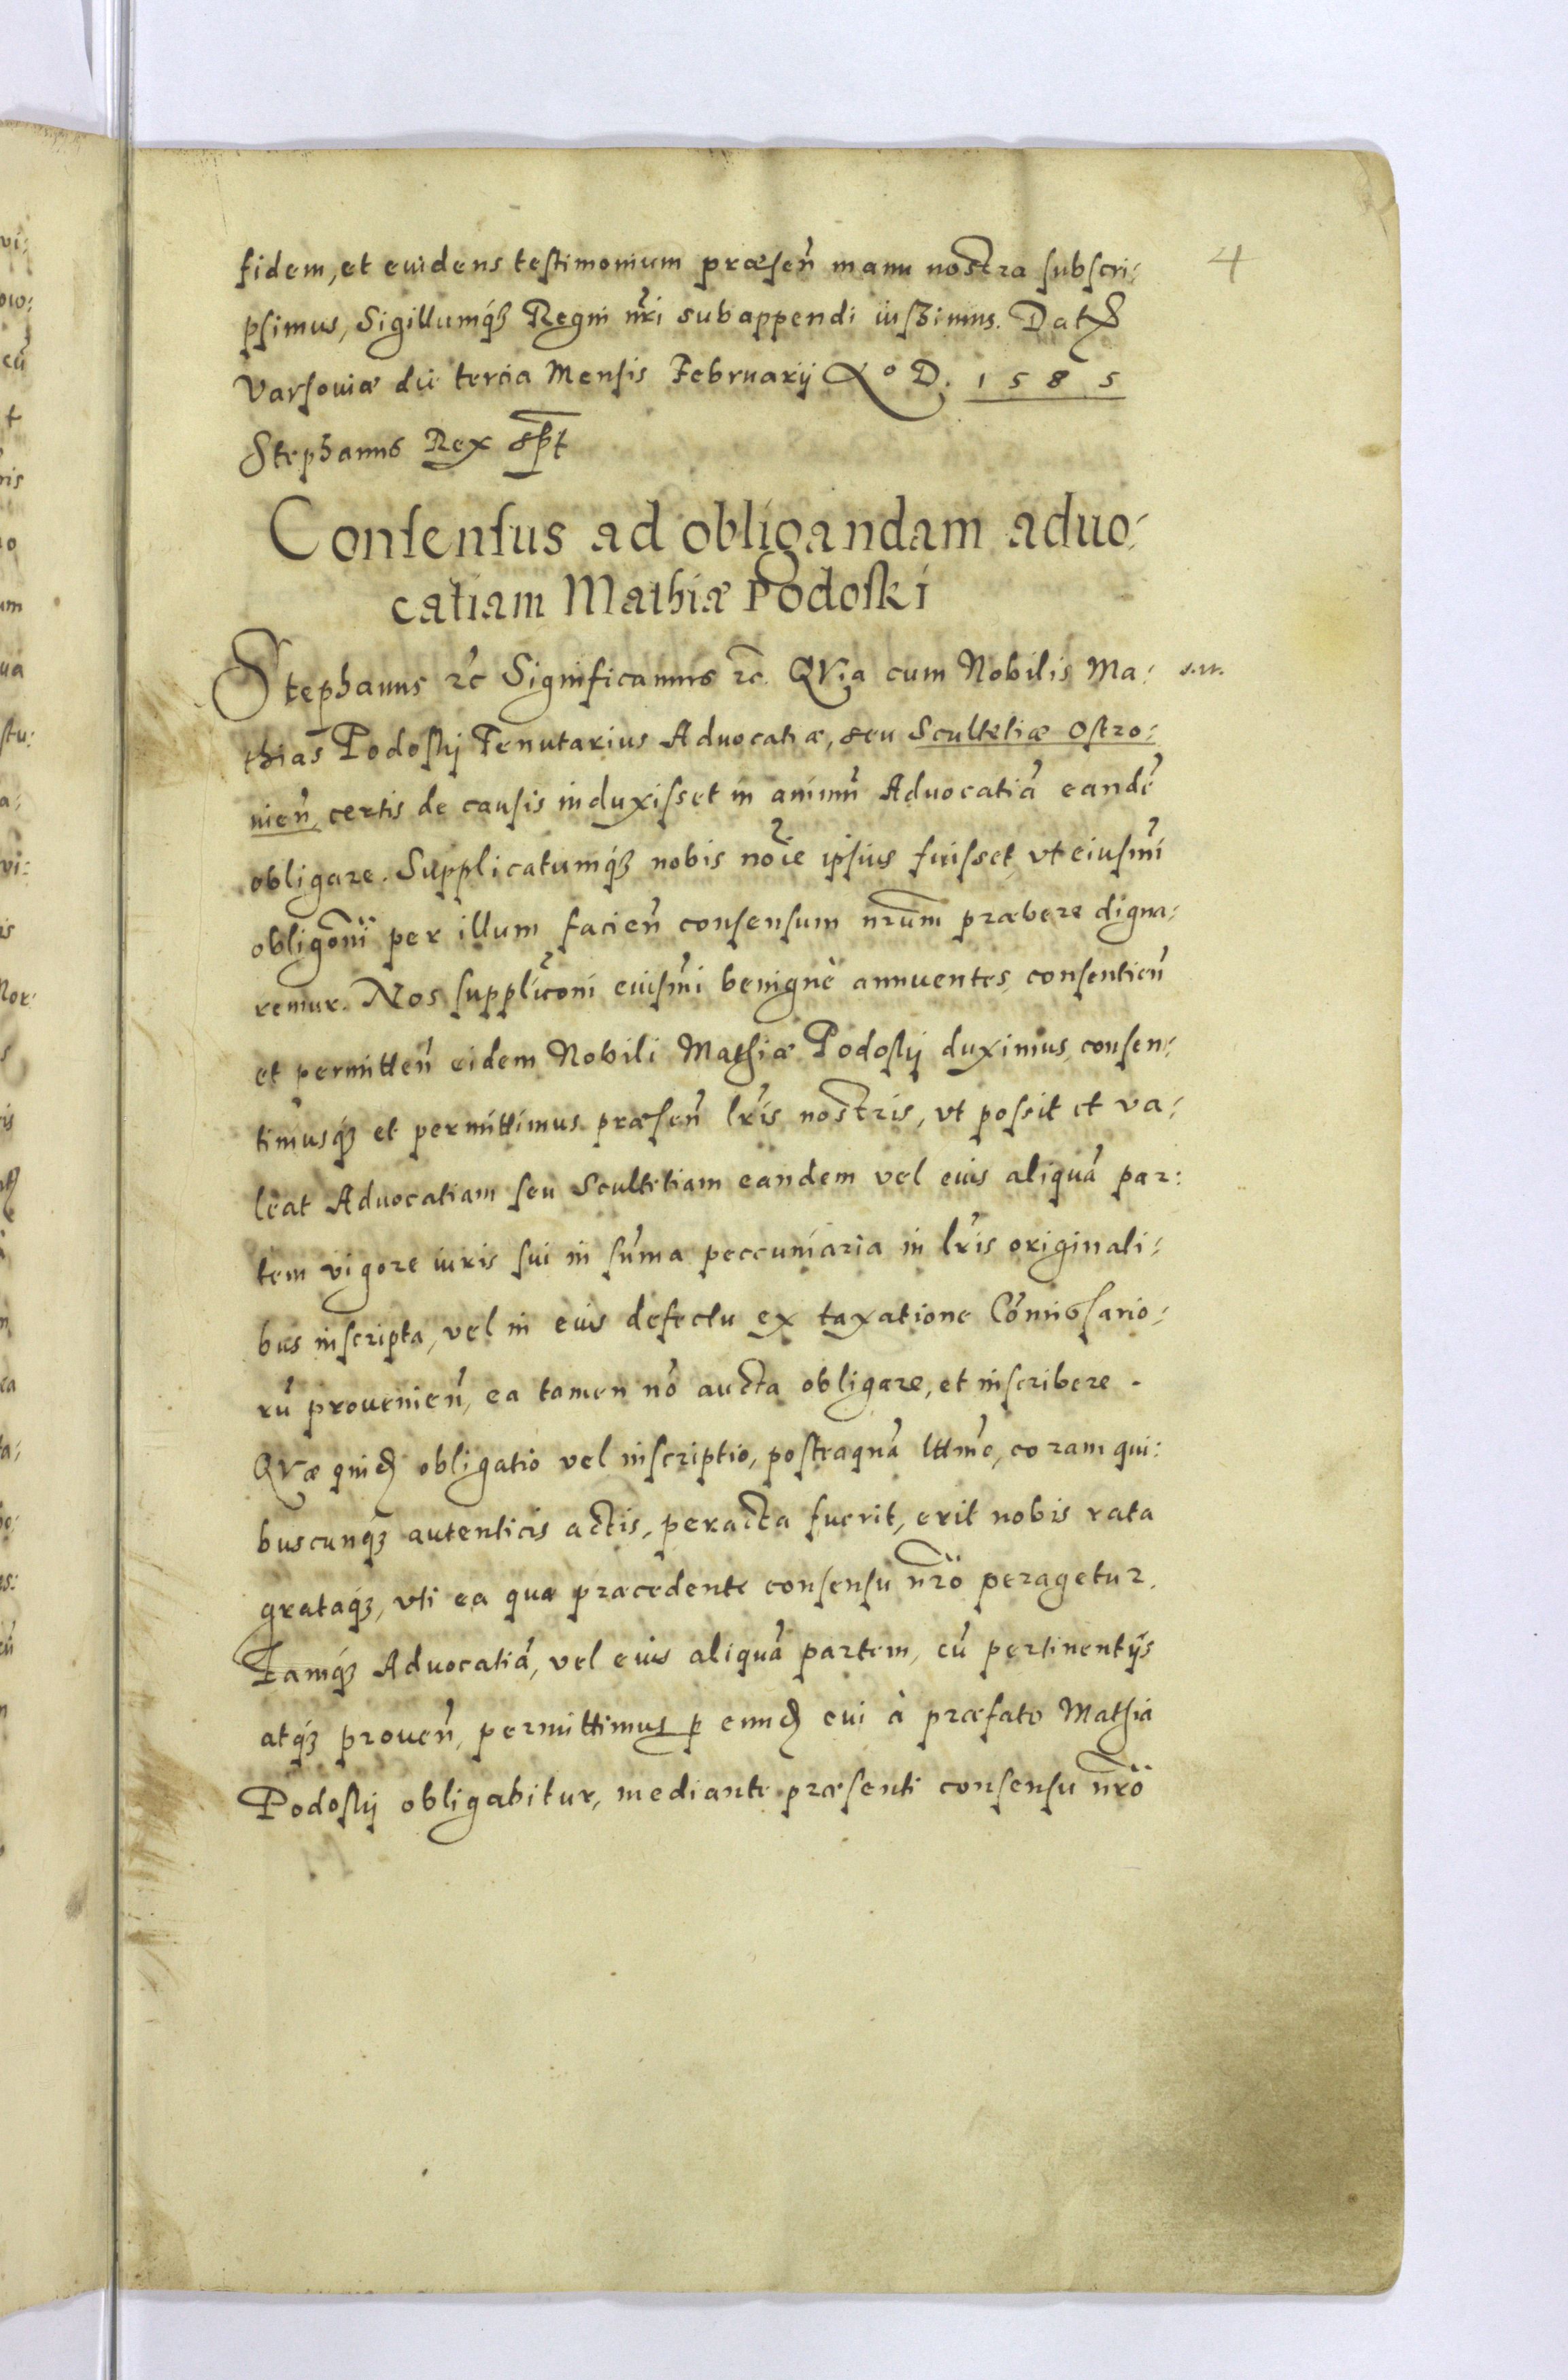 4
fidem, et euidens testimonium præsen̄ manu nostra subscri:
psimus, Sigillumq́ꝫ Regni nr̃i subappendi iussimus. Datꝭ
Varsouiæ die tercia Mensis Februarij Aº D. 1585
Stephanus Rex sp̄t
Consensus ad obligandam aduo:
catiam Mathiæ Podoski
Stephanus ꝛc̄ Significamus ꝛc̄. QVia cum Nobilis Ma:
thias Podoskij Tenutarius Aduocatiæ, seu Scultetiæ Ostro:
uien̄, certis de causis induxisset in animū Aduocatiā eandē
obligare. Supplicatumq́ꝫ nobis noīe ipsius fuisset, vt eiusm̄i
obligoñi per illum facien̄ consensum nrūm præbere digna:
remur. Nos supplicoñi eiusm̄i benignè annuentes, consentien̄
et permitten̄ eidem Nobili Mathiæ Podoskij duximus, consen:
timusq́ꝫ et permittimus præsen̄ lr̃is nostris, vt possit et va:
leat Aduocatiam seu Scultetiam eandem vel eius aliquā par:
tem vigore iuris sui in sum̄a peccuniaria in lr̃is originali:
bus inscripta, vel in eius defectu ex taxatione Com̄issario:
rū prouenien̄, ea tamen nō aucta obligare, et inscribere.
QVæ quidꝫ obligatio vel inscriptio, posteaquā lttmē, coram qui:
buscunqꝫ autenticis actis, peracta fuerit, erit nobis rata
grataq́ꝫ, vti ea quæ præcedente consensu nr̃o peragetur.
Eamq́ꝫ Aduocatiā, vel eius aliquā partem, cū pertinentijs
atq́ꝫ prouen̄, permittimus ꝑ eundꝫ cui à præfato Mathia
Podoskij obligabitur, mediante præsenti consensu nr̃o